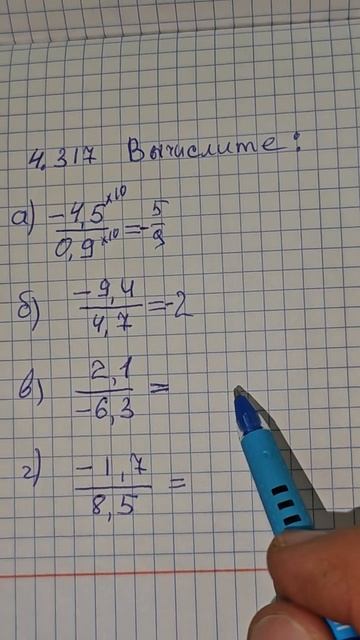 4.317 Вычислите:
а) -4,5 ×10 / 0,9 ×10 = - 5/9
б) -9,4 / 4,7 = -2
в) 2,1 / -6,3 =
г) -1,7 / 8,5 =